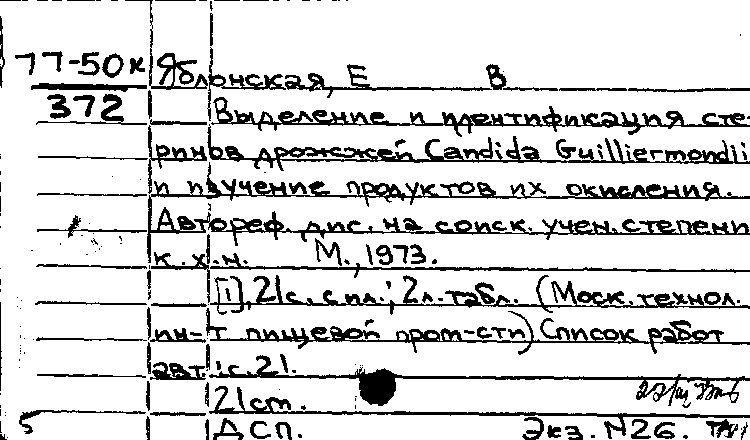 77-50к Яблонская, Е В
372 Выделение и идентификация сте-
ринов дрожжей Candida Guilliermondii
и изучение продуктов их окисления.
Автореф. дис. на соиск. учен. степени
к.х.н. М., 1973.
[1], 21с. с ил.; 2л. табл. (Моск. технол.
ин-т пищевой пром-сти) Список работ
авт.: с. 21.
21ст.
5 ДСП. Экз. N26.